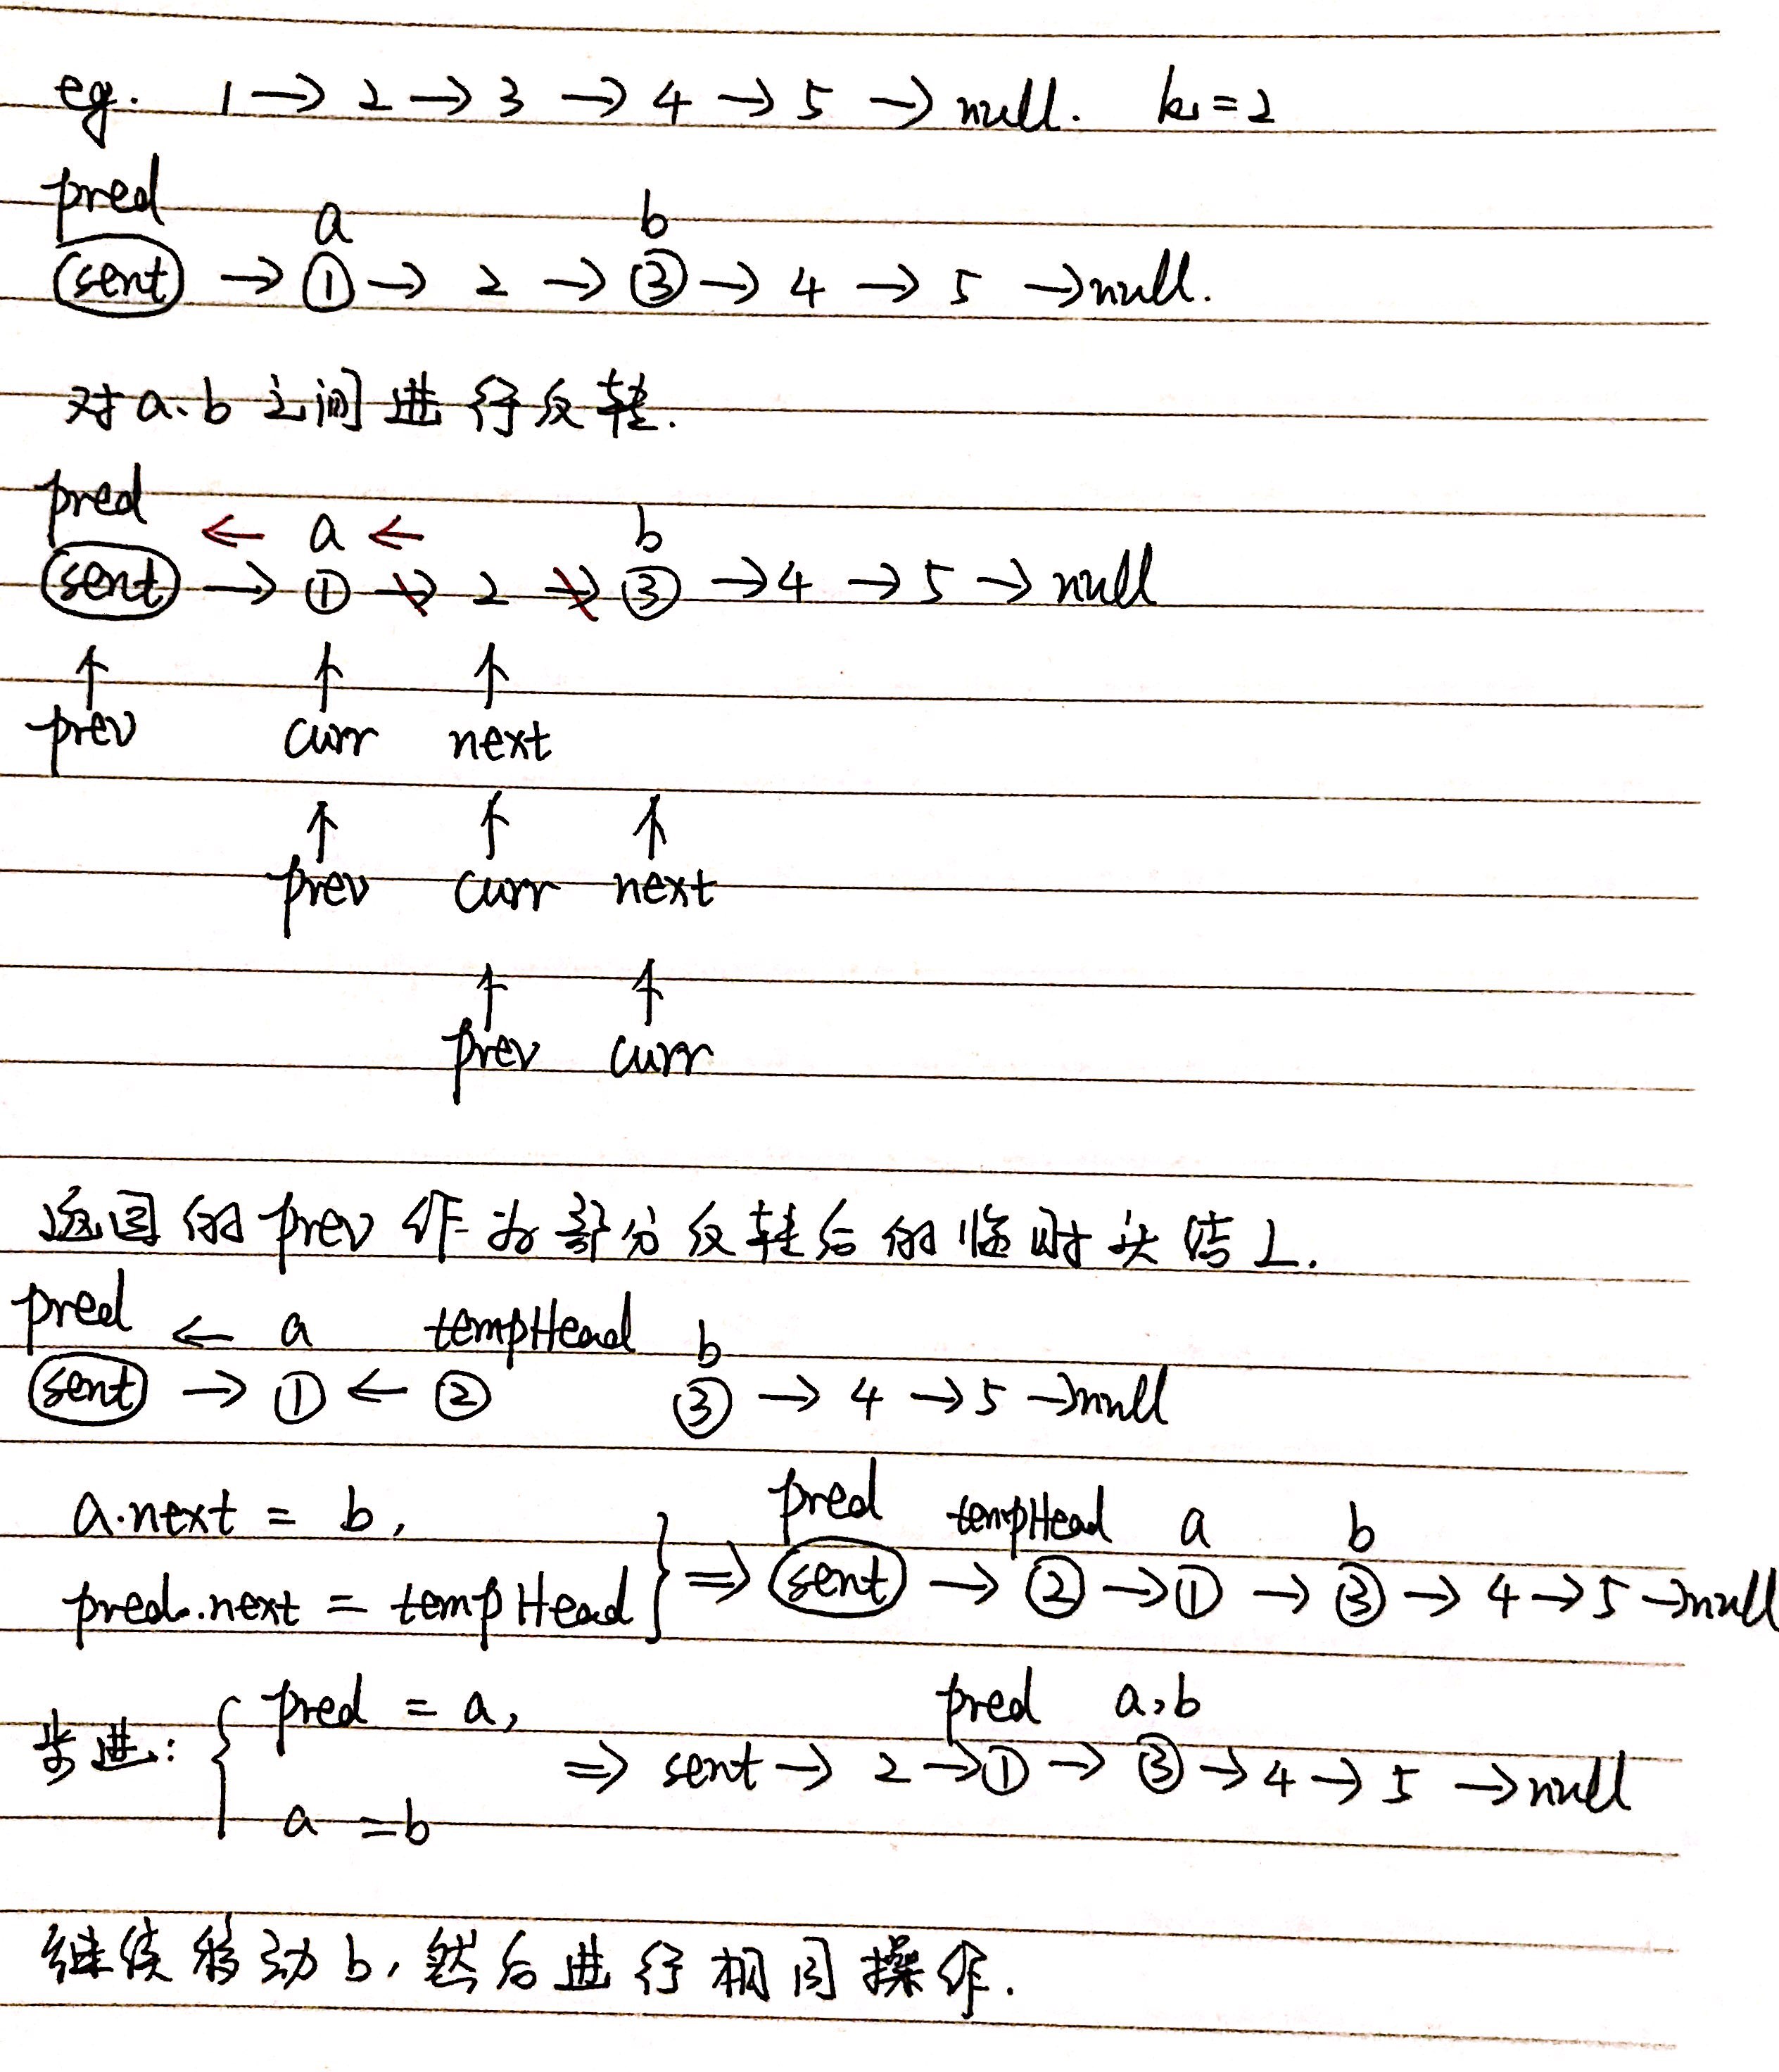 eg. 1 → 2 → 3 → 4 → 5 → null. k=2
pred a b
sent → ① → 2 → ③ → 4 → 5 → null.
对a、b之间进行反转.
pred ← a ← b
sent → ① → 2 → ③ → 4 → 5 → null
↑ ↑ ↑
prev curr next
↑ ↑ ↑
prev curr next
↑ ↑
prev curr
返回的prev作为部分反转后的临时头结点.
pred ← a tempHead b
sent → ① ← ② ③ → 4 → 5 → null
a.next = b, pred tempHead a b
pred.next = tempHead } ⇒ sent → ② → ① → ③ → 4 → 5 → null
pred = a, pred a,b
步进: { ⇒ sent → 2 → ① → ③ → 4 → 5 → null
a = b
继续移动b,然后进行相同操作.